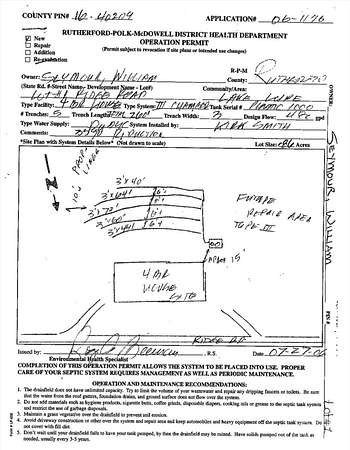 COUNTY PIN# 16-40209 APPLICATION# 06-1176
RUTHERFORD-POLK-McDOWELL DISTRICT HEALTH DEPARTMENT
OPERATION PERMIT
(Permit subject to revocation if site plans or intended use changes)
New
Repair
Addition
Re-evaluation
R-P-M
Owner: SEYMOUR, WILLIAM County: RUTHERFORD
(# - Street/Road Name - Development Name - Lot#) Community/Area:
LOT#1 RIDGE ROAD LAKE LURE
Type Facility: 4 BDR HOUSE Type System III CHAMBER Tank Serial # PLASTIC 1000
# Trenches: 5 Trench Length: Trench Width: 3 Design Flow: 480 gpd
Type Water Supply: PUBLIC System Installed by: KIRK SMITH
Comments: 25% REDUCTION
*Site Plan with System Details Below* (Not drawn to scale) Lot Size: .86 Acres
PROP LINE
10'
3'x40'
3'x64'
3'x70'
3'x60'
FUTURE
REPAIR AREA
TYPE III
15'
4 BDR
HOUSE
SITE
RIDGE RD.
SEYMOUR, WILLIAM
PIN#
LOT#1
Issued by: R.S. Date 07-27-06
Environmental Health Specialist
COMPLETION OF THIS OPERATION PERMIT ALLOWS THE SYSTEM TO BE PLACED INTO USE. PROPER
CARE OF YOUR SEPTIC SYSTEM REQUIRES MANAGEMENT AS WELL AS PERIODIC MAINTENANCE.
OPERATION AND MAINTENANCE RECOMMENDATIONS:
1. The drainfield does not have unlimited capacity. Try to limit the volume of your wastewater and repair any dripping faucets or toilets. Be sure
that the water from the roof gutters, foundation drains, and ground surface does not flow over the system.
2. Do not add materials such as hygiene products, cigarette butts, coffee grinds, disposable diapers, cooking oils or grease to the septic tank system
and restrict the use of garbage disposals.
3. Maintain a grass vegetative over the drainfield to prevent soil erosion.
4. Avoid driveway construction or other over the system and repair area and keep automobiles and heavy equipment off the septic tank system. Do
not cover with fill dirt.
5. Don't wait until your drainfield fails to have your tank pumped, by then the drainfield may be ruined. Have solids pumped out of the tank as
needed, usually every 3-5 years.